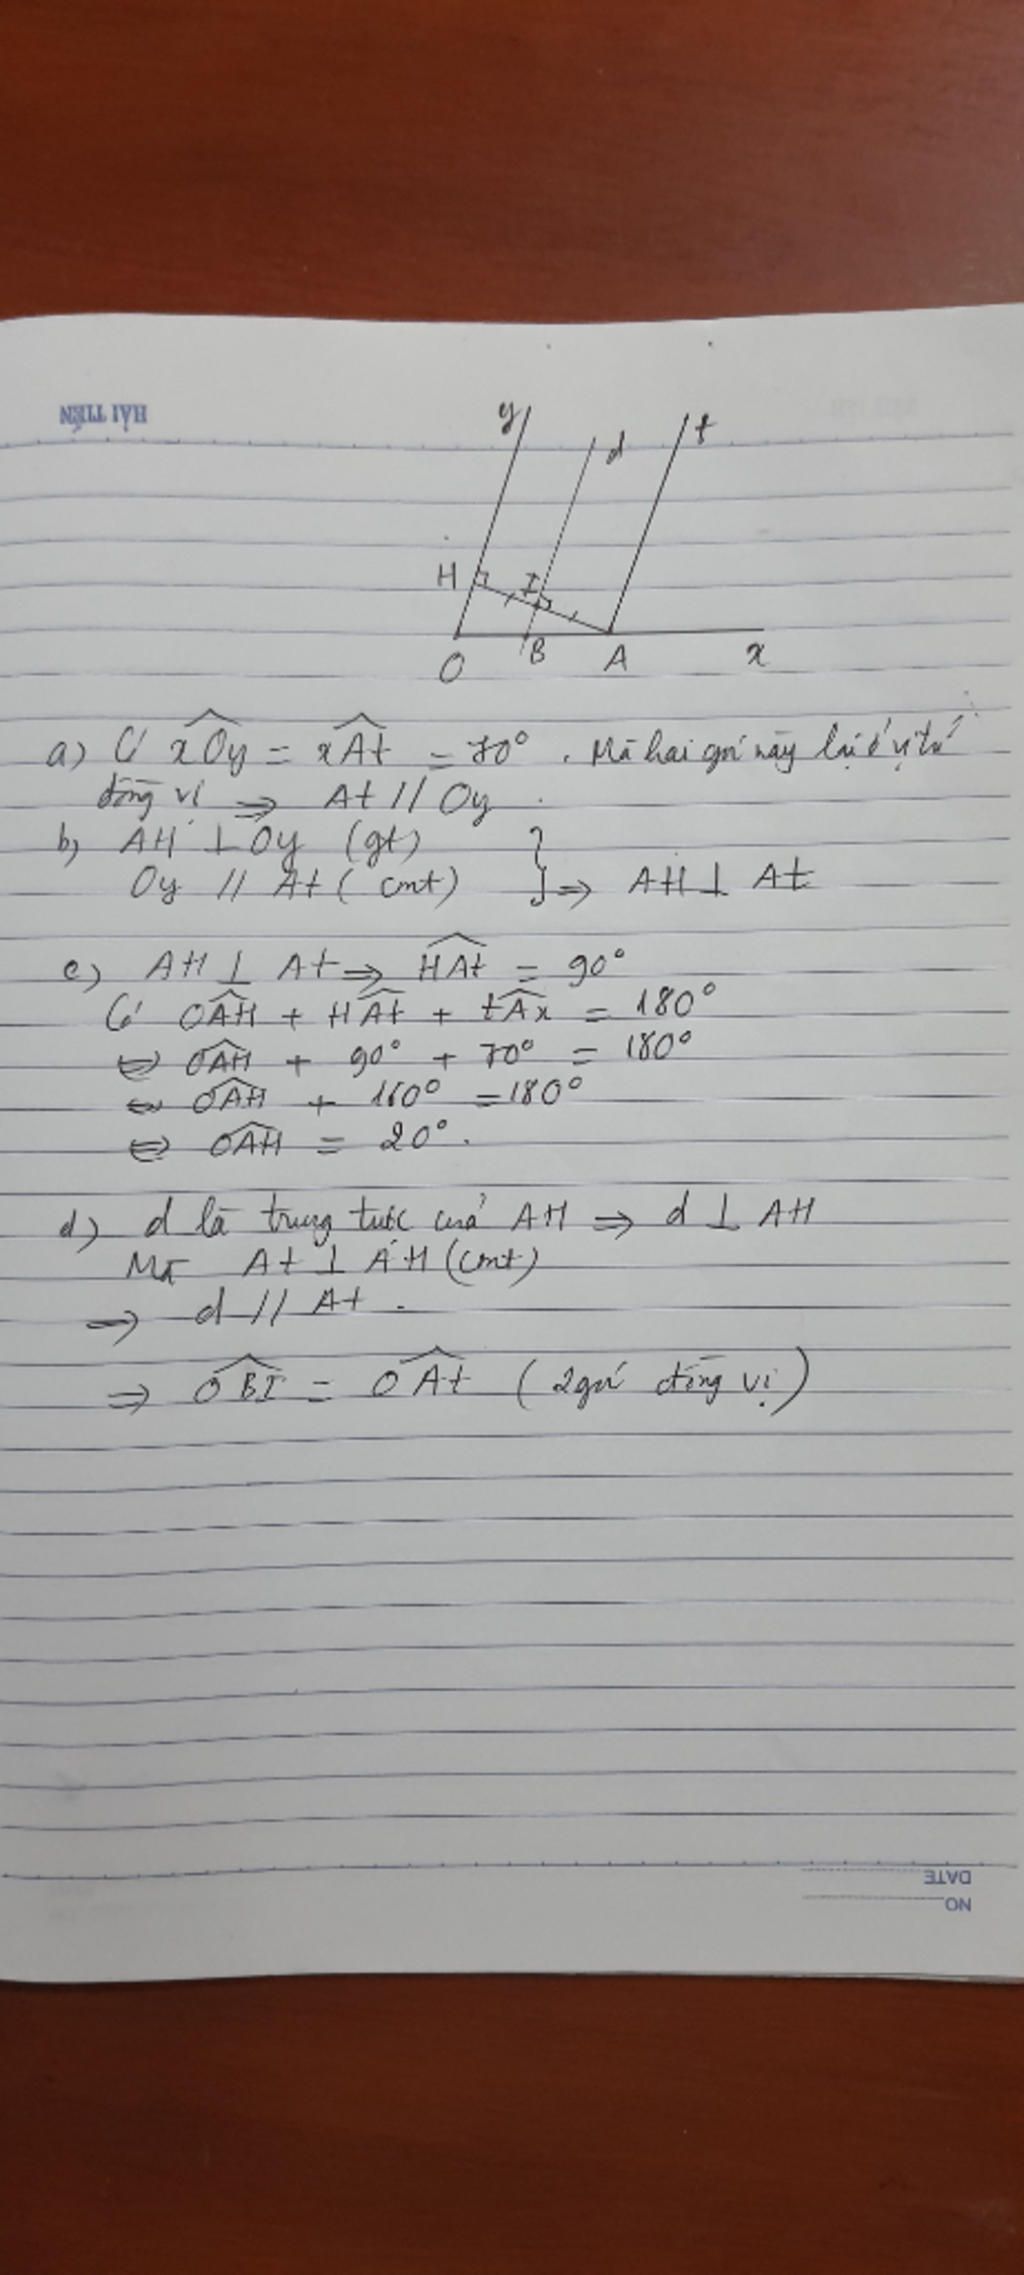 HẢI TIẾN
y
d
t
H
I
O
B
A
x
a) Có xOy = xAt = 70°. Mà hai góc này lại ở vị trí
đồng vị ⇒ At // Oy.
b) AH ⊥ Oy (gt)
Oy // At (cmt) } ⇒ AH ⊥ At
c) AH ⊥ At ⇒ HAt = 90°
Có OAH + HAt + tAx = 180°
⇔ OAH + 90° + 70° = 180°
⇔ OAH + 160° = 180°
⇔ OAH = 20°.
d) d là trung trực của AH ⇒ d ⊥ AH
Mà At ⊥ AH (cmt)
⇒ d // At.
⇒ OBI = OAt (2 góc đồng vị)
DATE
NO